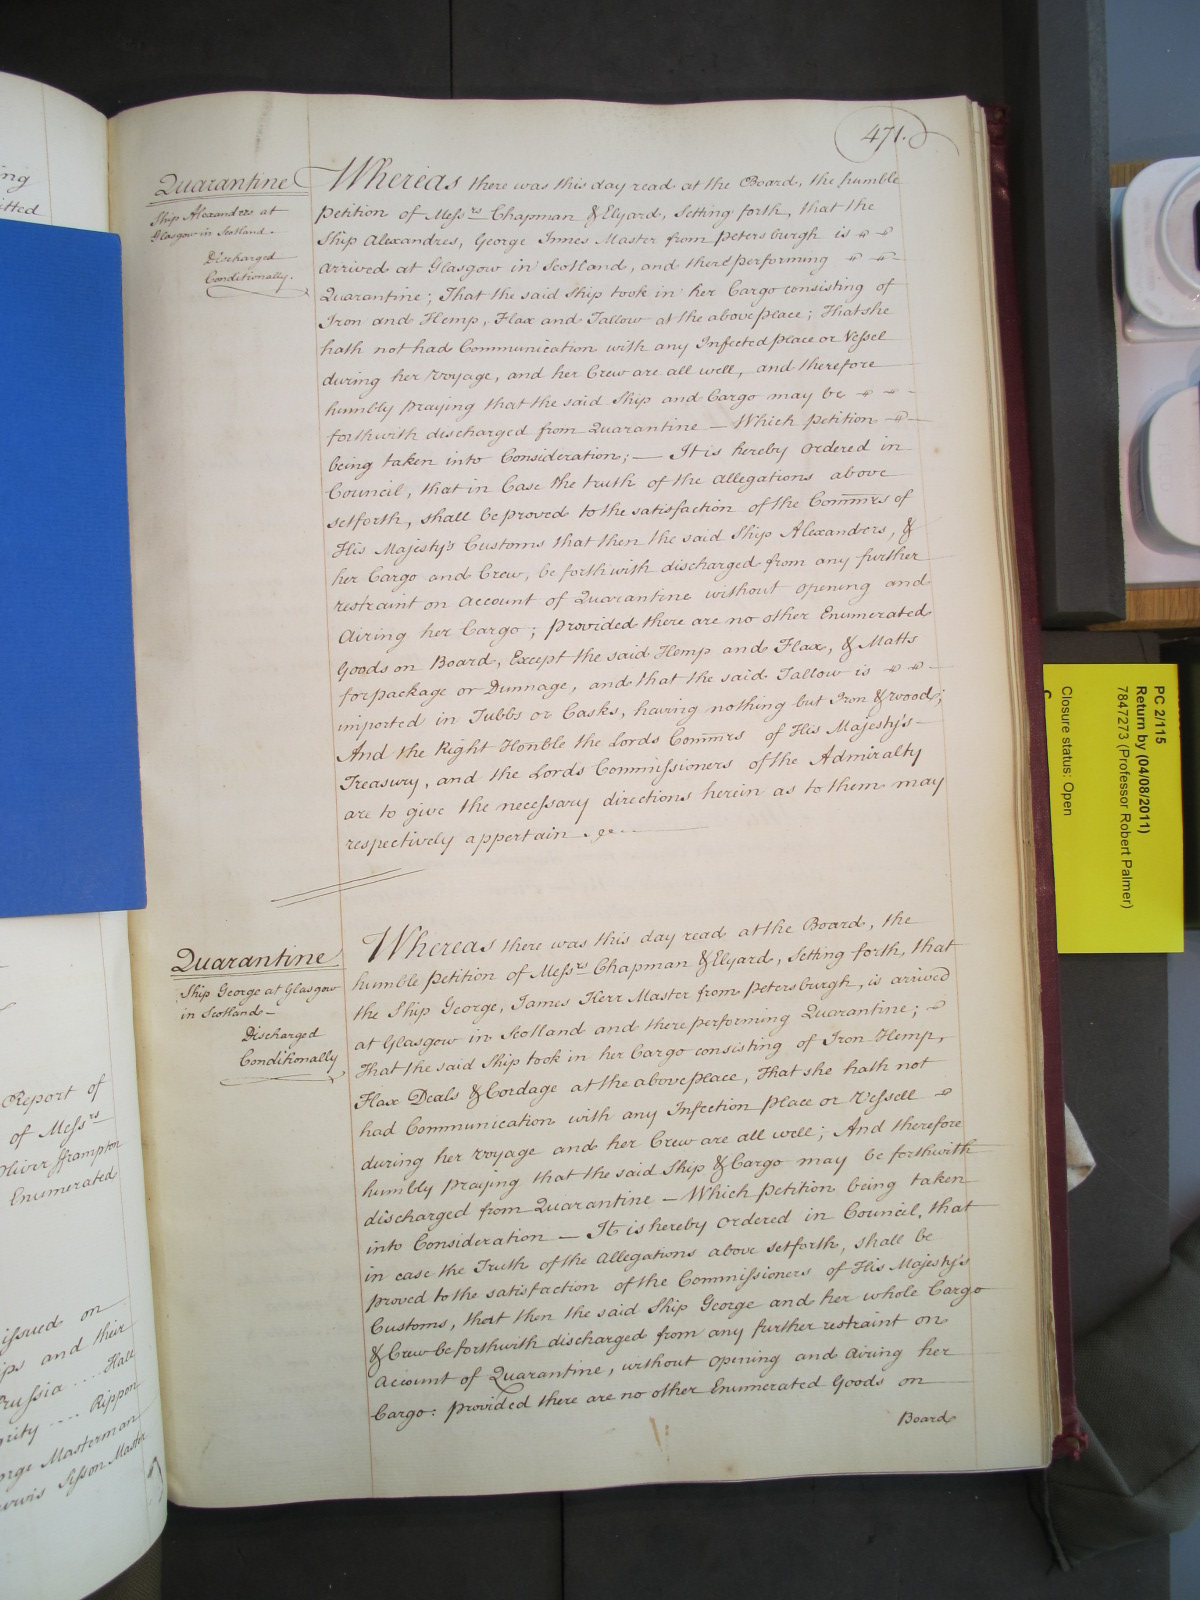 471.
Quarantine
Ship Alexandrs at
Glasgow in Scotland.
Discharged
Conditionally.
Whereas there was this day read at the Board, the humble
Petition of Messrs Chapman & Elyard, Setting forth, that the
Ship Alexandres, George Innes Master from Petersburgh is
arrived at Glasgow in Scotland, and there performing
Quarantine; That the said Ship took in her Cargo consisting of
Iron and Hemp, Flax and Tallow at the above place; That she
hath not had Communication with any Infected place or Vessel
during her Voyage, and her Crew are all well, and therefore
humbly praying that the said Ship and Cargo may be
forthwith discharged from Quarantine — Which Petition
being taken into Consideration; — It is hereby Ordered in
Council, that in Case the truth of the Allegations above
setforth, shall be proved to the satisfaction of the Commrs of
His Majesty's Customs that then the said Ship Alexanders, &
her Cargo and Crew, be forthwith discharged from any further
restraint on Account of Quarantine without opening and
Airing her Cargo; Provided there are no other Enumerated
Goods on Board, Except the said Hemp and Flax, & Matts
for package or Dunnage, and that the said Tallow is
imported in Tubbs or Casks, having nothing but Iron & wood;
And the Right Honble the Lords Commrs of His Majesty's
Treasury, and the Lords Commissioners of the Admiralty
are to give the necessary directions herein as to them may
respectively appertain
Quarantine
Ship George at Glasgow
in Scotland—
Discharged
Conditionally
Whereas there was this day read at the Board, the
humble Petition of Messrs Chapman & Elyard, Setting forth, that
the Ship George, James Kerr Master from Petersburgh, is arrived
at Glasgow in Scotland and there performing Quarantine;
That the said Ship took in her Cargo consisting of Iron Hemp,
Flax Deals & Cordage at the above place, That she hath not
had Communication with any Infection Place or Vessell
during her Voyage and her Crew are all well; And therefore
humbly praying that the said Ship & Cargo may be forthwith
discharged from Quarantine — Which Petition being taken
into Consideration — It is hereby Ordered in Council, that
in case the Truth of the Allegations above setforth, shall be
proved to the satisfaction of the Commissioners of His Majesty's
Customs, that then the said Ship George and her whole Cargo
& Crew be forthwith discharged from any further restraint on
Account of Quarantine, without opening and Airing her
Cargo: Provided there are no other Enumerated Goods on
Board
Report of
of Messrs
Oliver fframpton
Enumerated
issued on
and their
Russia .... Hall
.... Rippon
Masterman
Sisson Master
PC 2/115
Return by (04/08/2011)
7847273 (Professor Robert Palmer)
Closure status: Open